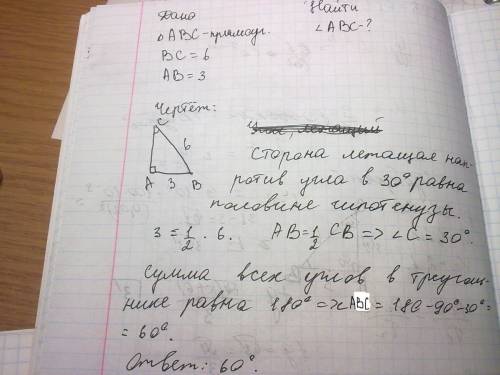 Дано
Найти
△ABC - прямоуг.
∠ABC-?
BC = 6
AB = 3
Чертёж:
C
6
A 3 B
Сторона лежащая нап-
ротив угла в 30° равна
половине гипотенузы.
3 = 1/2 · 6. AB = 1/2 CB => ∠C = 30°.
Сумма всех углов в треуголь-
нике равна 180° => ABC = 180-90°-30°=
= 60°.
Ответ: 60°.